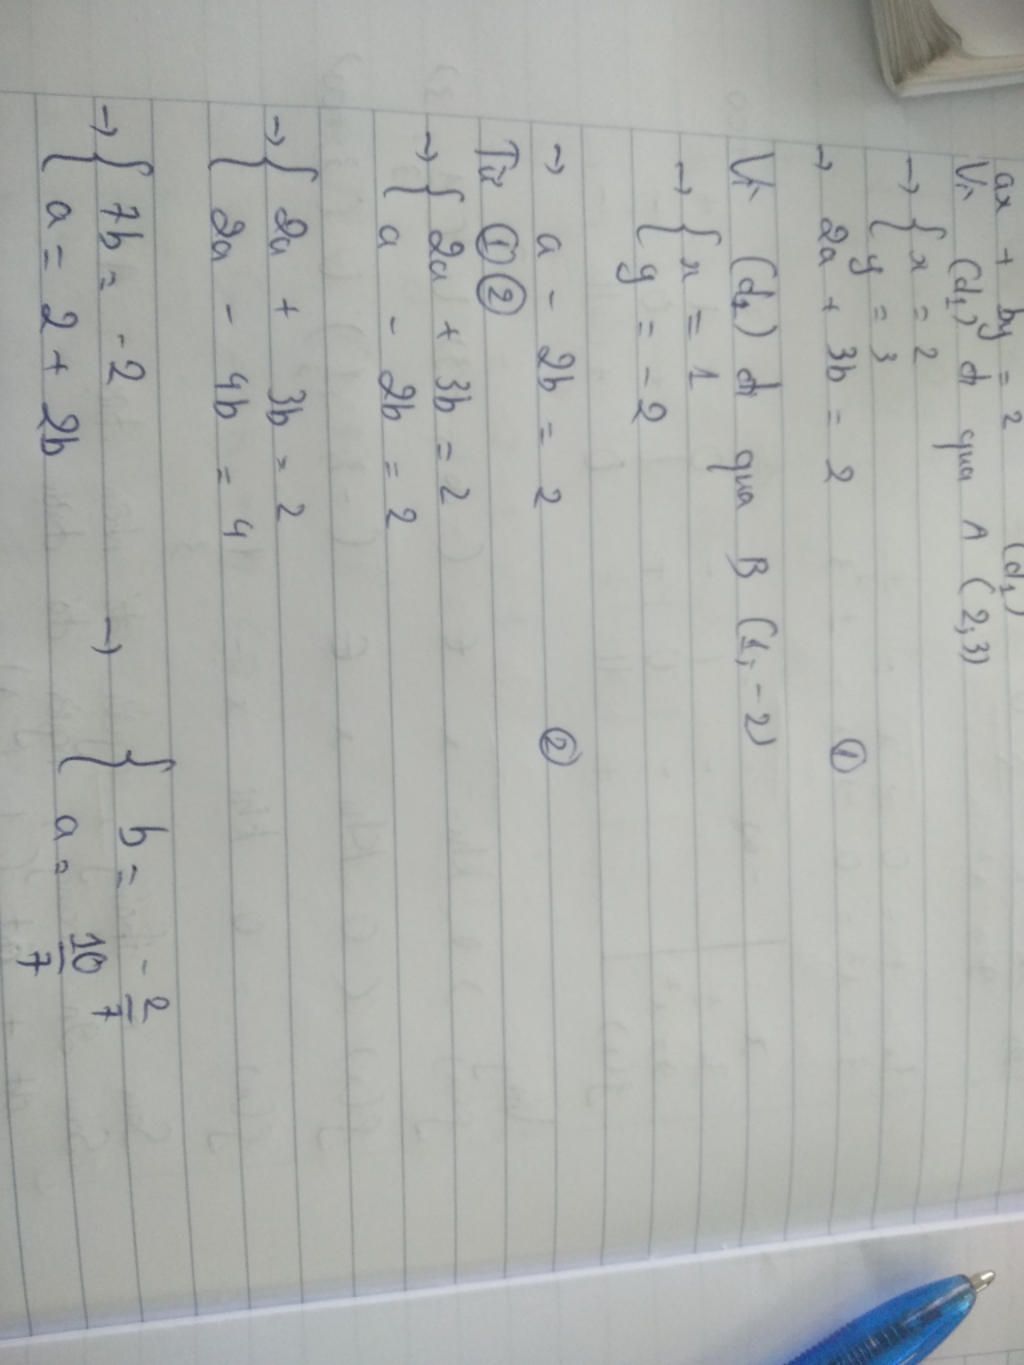 ax + by = 2 (d₁)
Vì (d₁) đi qua A (2,3)
→ { x = 2
{ y = 3
→ 2a + 3b = 2 ①
Vì (d₁) đi qua B (1,-2)
→ { x = 1
{ y = -2
→ a - 2b = 2 ②
Từ ① ②
→ { 2a + 3b = 2
{ a - 2b = 2
→ { 2a + 3b = 2
{ 2a - 4b = 4
→ { 7b = -2 → { b = -2/7
{ a = 2 + 2b { a = 10/7